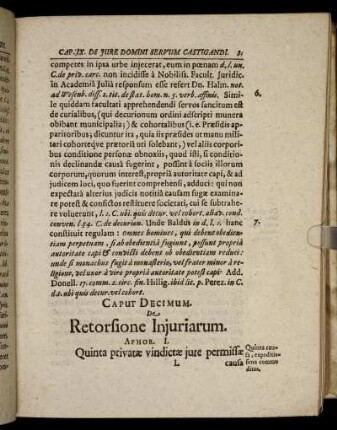 CAP. IX. DE JURE DOMINI SERVUM CASTIGANDI. 81
competes in ipsa urbe injecerat, eum in pœnam d. l. un.
C. de priv. carc. non incidisse à Nobiliss. Facult. Juridic.
in Academiâ Juliâ responsum esse refert Dn. Hahn. not.
ad Wesenb. diss. 2. tit. de stat. hom. n. 5. verb. assinis. Simi- 6.
le quiddam facultati apprehendendi servos sancitum est
de curialibus, (qui decurionum ordini adscripti munera
obibant municipalia;) & cohortalibus (i. e. Præsidis ap-
paritoribus; dicuntur ita, quia iis præsides ut manu mili-
tari cohorteqve prætorii uti solebant,) vel aliis corporis
bus conditione personæ obnoxiis, quod isti, si conditio-
nis declinandæ causâ fugerint, possint à sociis illorum
corporum, quorum interest, propriâ autoritate capi, & ad
judicem loci, quo fuerint comprehensi, adduci: qui non
expectatâ alterius judicis notitiâ causam fugæ examina-
re potest & convictos restituere societati, cui se subtra-
here voluerunt, l. 1. C. ubi quis decur. vel cohort. aliâv. cond.
conven. l. 54. C. de decurion. Unde Baldus in d. l. 1. hanc 7.
constituit regulam: omnes homines, qui debent obedien-
tiam perpetuam, si ab obedientiâ fugiunt, possunt propriâ
autoritate capi & convicti debent ob obedientiam reduci:
unde si monachus fugit à monasterio, vel frater minor à re-
ligione, vel uxor à viro propriâ autoritate potest capi Add.
Donell. 17. comm. 2. circ. fin. Hillig. ibid. lit. p. Perez. in C.
d. t. ubi quis decur. vel cohort.
CAPUT DECIMUM.
De
Retorsione Injuriarum.
APHOR. I.
Quinta privatæ vindictæ jure permissæ Quinta cau-
sa, expeditis-
L causa sima commo-
ditas.